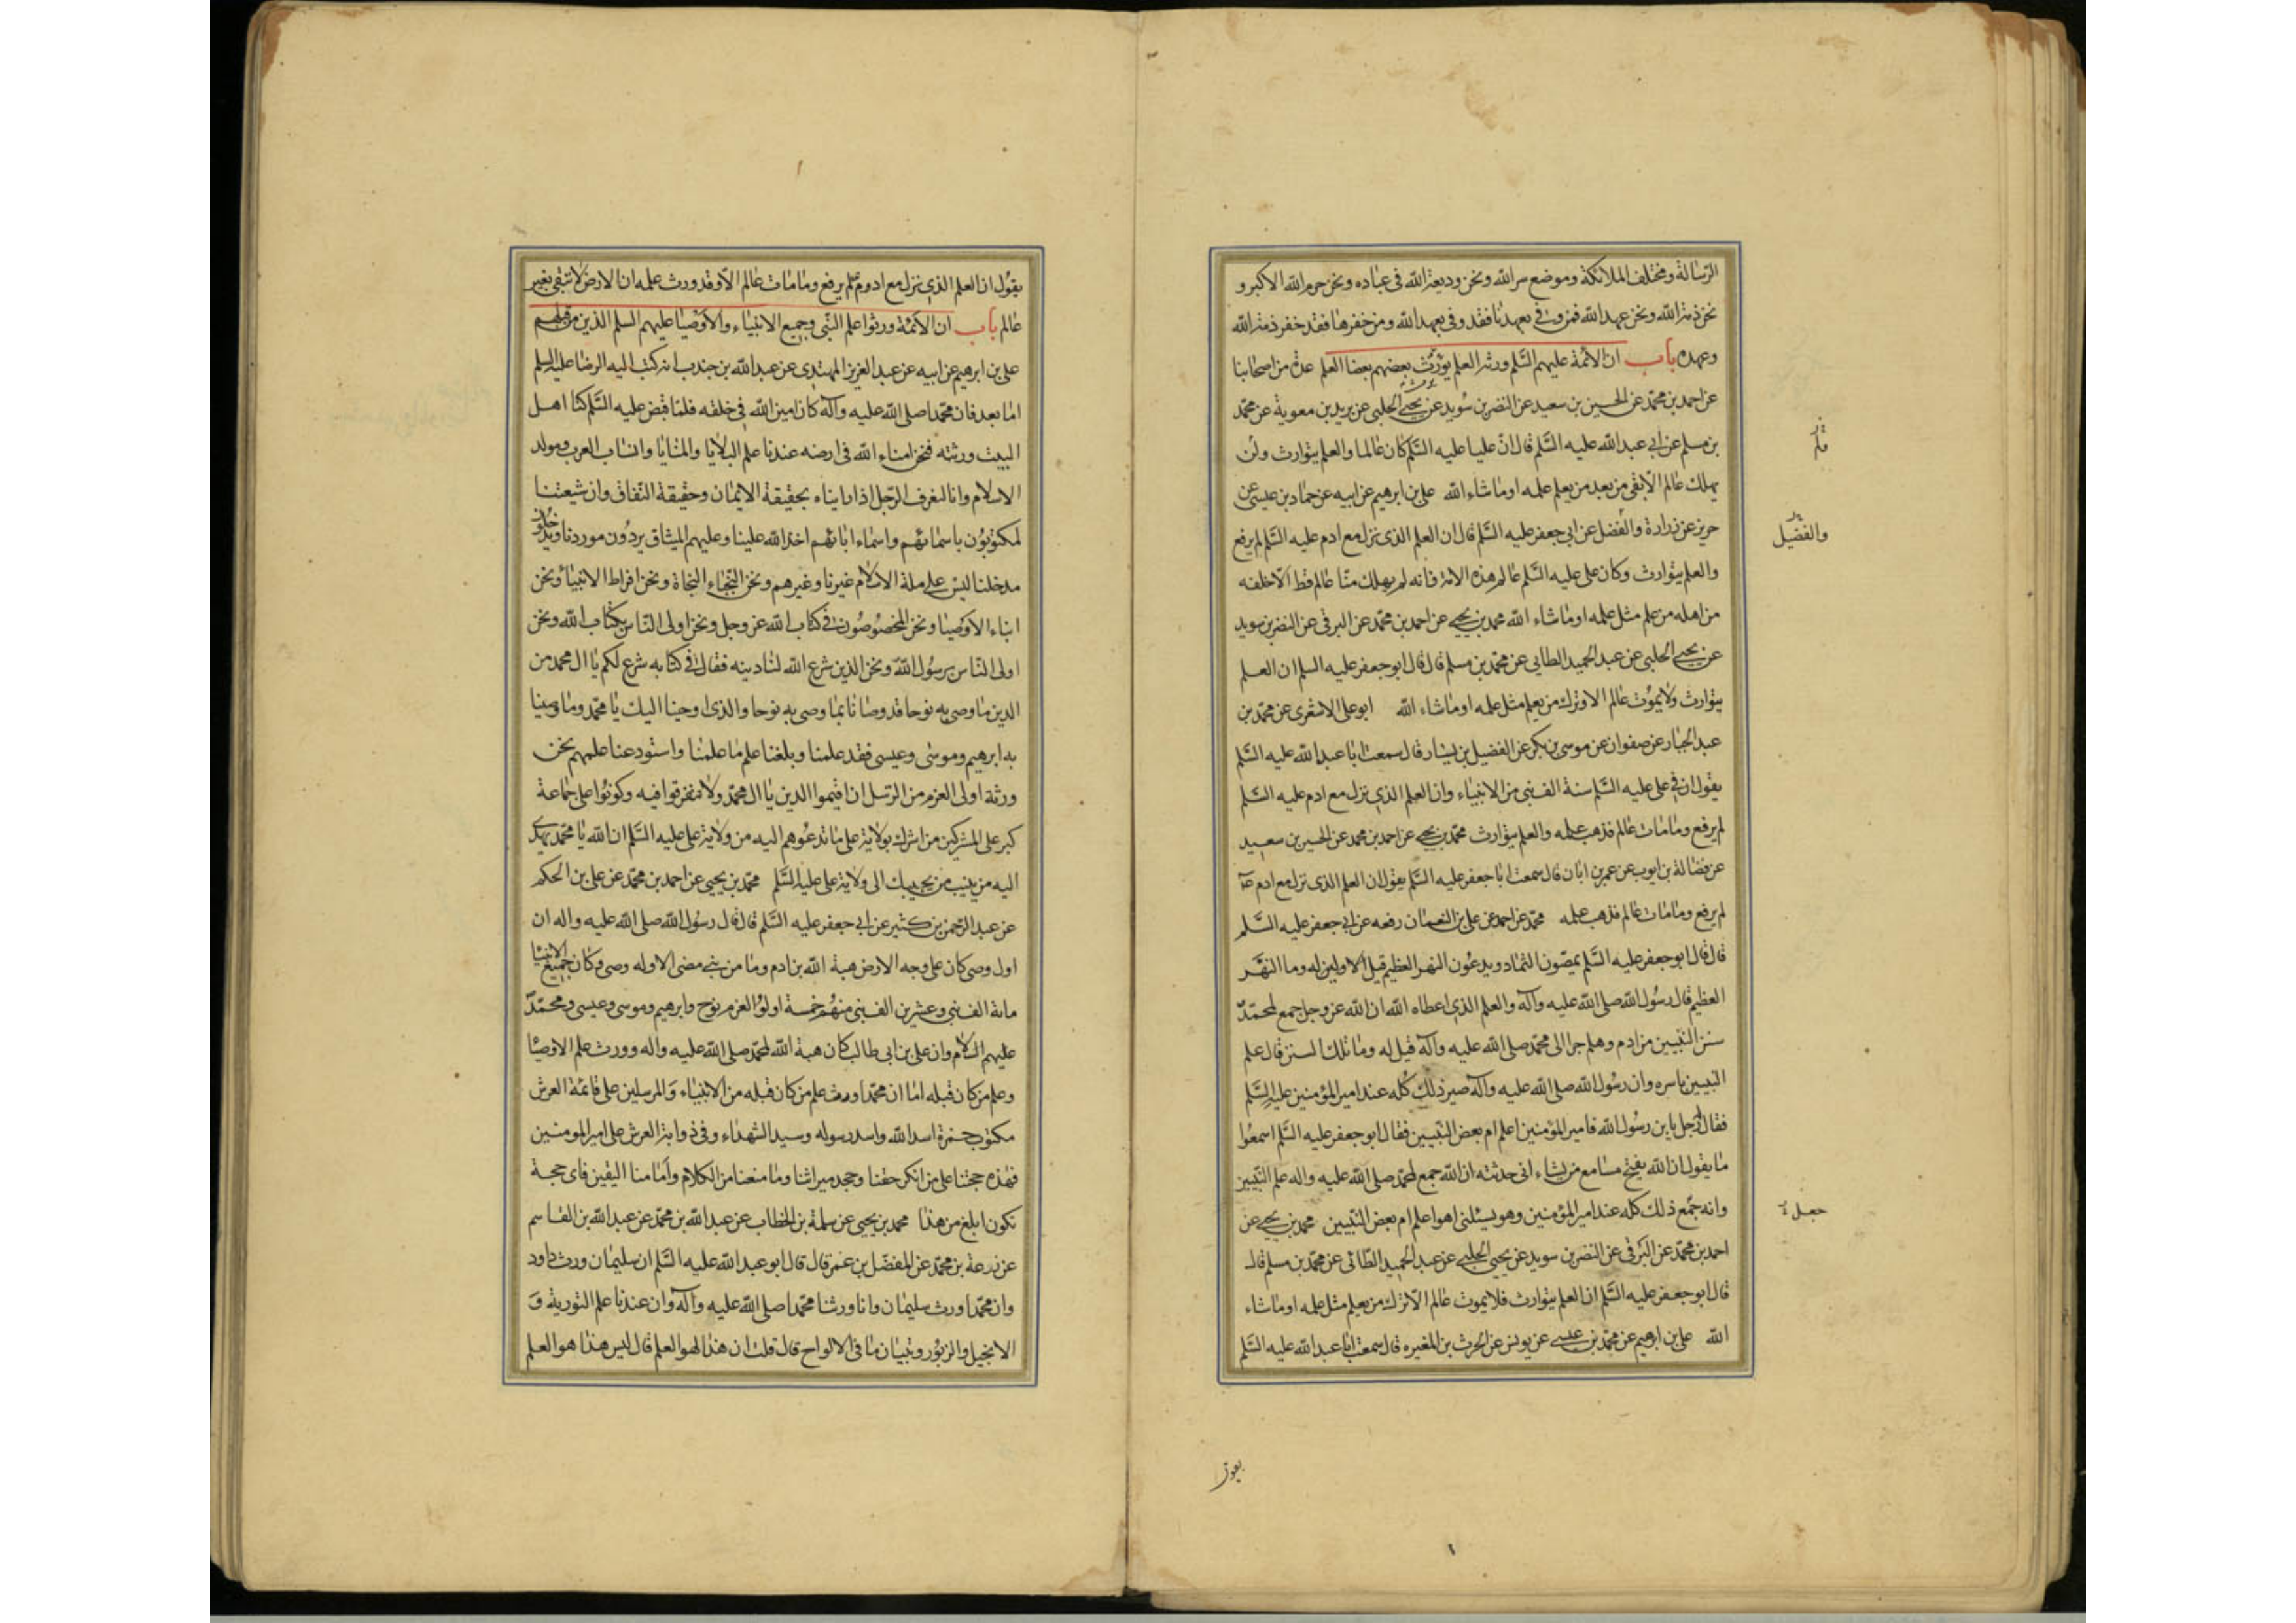 الرسالة ومختلف الملائكة وموضع سر الله ونحن وديعة الله في عباده ونحن حرم الله الاكبر و
نحن ذمة الله ونحن عهد الله فمن وفى بعهدنا فقد وفى بعهد الله ومن خفرها فقد خفر ذمة الله
وعهده باب ان الائمة عليهم السلم ورثة العلم يورث بعضهم بعضا العلم عدة من اصحابنا
عن احمد بن محمد عن الحسين بن سعيد عن النضر بن سويد عن يحيى الحلبي عن بريد بن معوية عن محمد
بن مسلم عن ابي عبد الله عليه السلم قال ان عليا عليه السلم كان عالما والعلم يتوارث ولن
يهلك عالم الا بقي من بعد من يعلم علمه او ما شاء الله علي بن ابرهيم عن ابيه عن حماد بن عيسى عن
حريز عن زرارة والفضل عن ابي جعفر عليه السلم قال ان العلم الذي نزل مع ادم عليه السلم لم يرفع
والعلم يتوارث وكان علي عليه السلم عالم هذه الامة فانه لم يهلك منا عالم قط الا خلفه
من اهله من علم مثل علمه او ما شاء الله محمد بن يحيى عن احمد بن محمد عن البرقي عن النضر بن سويد
عن يحيى الحلبي عن عبد الحميد الطايى عن محمد بن مسلم قال قال ابو جعفر عليه السلم ان العلم
يتوارث ولا يموت عالم الا وترك من يعلم مثل علمه او ما شاء الله ابو علي الاشعري عن محمد بن
عبد الجبار عن صفوان عن موسى بن بكر عن الفضيل بن يسار قال سمعت ابا عبد الله عليه السلم
يقول ان في علي عليه السلم سنة الف نبي من الانبياء وان العلم الذي نزل مع ادم عليه السلم
لم يرفع وما مات عالم فذهب علمه والعلم يتوارث محمد بن يحيى عن احمد بن محمد عن الحسين بن سعيد
عن فضالة بن ايوب عن عمر بن ابان قال سمعت ابا جعفر عليه السلم يقول ان العلم الذي نزل مع ادم ع
لم يرفع وما مات عالم فذهب علمه محمد عن احمد عن علي بن النعمان رفعه عن ابي جعفر عليه السلم
قال قال ابو جعفر عليه السلم يمصون الثماد ويدعون النهر العظيم قيل له وما النهر
العظيم قال رسول الله صلى الله عليه وآله والعلم الذي اعطاه الله ان الله عز وجل جمع لمحمد
سنن النبيين من ادم وهلم جرا الى محمد صلى الله عليه وآله قيل له وما تلك السنن قال علم
النبيين باسره وان رسول الله صلى الله عليه وآله صير ذلك كله عند امير المؤمنين عليه السلم
فقال له رجل يا بن رسول الله فامير المؤمنين اعلم ام بعض النبيين فقال ابو جعفر عليه السلم اسمعوا
ما يقول ان الله يفتح مسامع من يشاء اني حدثته ان الله جمع لمحمد صلى الله عليه واله علم النبيين
وانه جمع ذلك كله عند امير المؤمنين وهو يسئلني اهو اعلم ام بعض النبيين محمد بن يحيى عن
احمد بن محمد عن البرقي عن النضر بن سويد عن يحيى الحلبي عن عبد الحميد الطائى عن محمد بن مسلم قال
قال ابو جعفر عليه السلم ان العلم يتوارث فلا يموت عالم الا ترك من يعلم مثل علمه او ما شاء
الله علي بن ابرهيم عن محمد بن عيسى عن يونس عن الحرث بن المغيره قال سمعت ابا عبد الله عليه السلم
والفضيل
جعل
يقول ان العلم الذي نزل مع ادم لم يرفع وما مات عالم الا وقد ورث علمه ان الارض لا تبقى بغير
عالم باب ان الائمة ورثوا علم النبي وجميع الانبياء والاوصيا عليهم السلم الذين من قبلهم
علي بن ابرهيم عن ابيه عن عبد العزيز المهتدى عن عبد الله بن جندب انه كتب اليه الرضا عليه السلم
اما بعد فان محمدا صلى الله عليه وآله كان امين الله في خلقه فلما قبض عليه السلم كنا اهل
البيت ورثته فنحن امناء الله في ارضه عندنا علم البلايا والمنايا وانساب العرب ومولد
الاسلام وانا لنعرف الرجل اذا رايناه بحقيقة الايمان وحقيقة النفاق وان شيعتنا
لمكتوبون باسمائهم واسماء ابائهم اخذ الله علينا وعليهم الميثاق يردون موردنا ويدخلون
مدخلنا ليس على ملة الاسلام غيرنا وغيرهم ونحن النجباء النجاة ونحن افراط الانبياء ونحن
ابناء الاوصيا ونحن المخصوصون في كتاب الله عز وجل ونحن اولى الناس بكتاب الله ونحن
اولى الناس برسول الله ونحن الذين شرع الله لنا دينه فقال في كتابه شرع لكم يا ال محمد من
الدين ما وصى به نوحا قد وصانا بما وصى به نوحا والذي اوحينا اليك يا محمد وما وصينا
به ابرهيم وموسى وعيسى فقد علمنا وبلغنا علم ما علمنا واستودعنا علمهم نحن
ورثة اولى العزم من الرسل ان اقيموا الدين يا ال محمد ولا تتفرقوا فيه وكونوا على جماعة
كبر على المشركين من اشرك بولاية علي ما تدعوهم اليه من ولاية علي عليه السلم ان الله يا محمد يهدي
اليه من ينيب من يجيبك الى ولاية علي عليه السلم محمد بن يحيى عن احمد بن محمد عن علي بن الحكم
عن عبد الرحمن بن كثير عن ابي جعفر عليه السلم قال قال رسول الله صلى الله عليه واله ان
اول وصي كان على وجه الارض هبة الله بن ادم وما من نبي مضى الا وله وصي وكان جميع الانبيا
مائة الف نبي وعشرين الف نبي منهم خمسة اولوا العزم نوح وابرهيم وموسى وعيسى ومحمد
عليهم السلام وان علي بن ابي طالب كان هبة الله لمحمد صلى الله عليه واله وورث علم الاوصيا
وعلم من كان قبله اما ان محمدا ورث علم من كان قبله من الانبياء والمرسلين على قائمة العرش
مكتوب حمزة اسد الله واسد رسوله وسيد الشهداء وفي ذوابة العرش علي امير المومنين
فهذه حجتنا على من انكر حقنا وجحد ميراثنا وما منعنا من الكلام وأمامنا اليقين فاى حجة
تكون ابلغ من هذا محمد بن يحيى عن سلمة بن الخطاب عن عبد الله بن محمد عن عبد الله بن القاسم
عن زرعة بن محمد عن المفضل بن عمر قال قال ابو عبد الله عليه السلم ان سليمان ورث داود
وان محمدا ورث سليمان وانا ورثنا محمدا صلى الله عليه وآله وان عندنا علم التورية و
الانجيل والزبور وتبيان ما في الالواح قال قلت ان هذا لهو العلم قال ليس هذا هو العلم